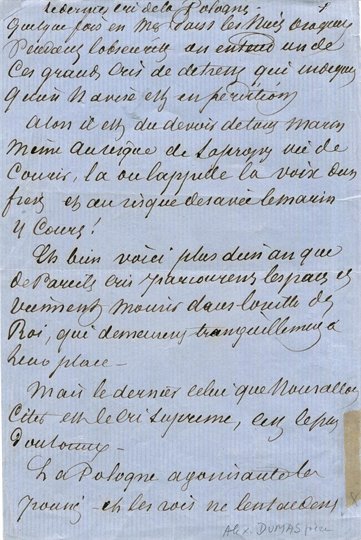 Le dernier cri de la Pologne
Quelque fois en Mer dans les Nuits orageuses
Pendant l'obscurité on entend un de
Ces grands Cris de detresse qui indiquent
qu'un Navire est en perdition
Alors il est du devoir de tout Marin
Même au risque de sa propre vie de
Courir, la ou l'appelle la voix d'un
frere et au risque de sa vie le marin
y Court!
Eh bien voici plus d'un an que
de Pareils Cris parcourent l'espace et
viennent mourir dans l'oreille des
Roi, qui demeurent tranquillement a
leur place –
Mais le dernier celui que Nous allons
Citer est le Cri Supreme, c'est le plus
Douloureux –
La Pologne agonisante l'a
poussé – et les rois ne l'entendent
Alex. DUMAS père